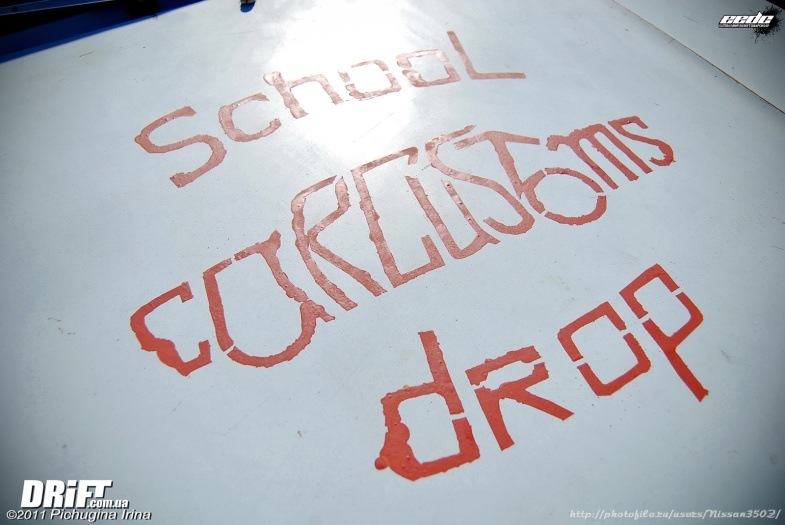 eedc
School
CARCUSTOMS
drop
DRiFT.com.ua
©2011 Pichugina Irina
http://photofile.ru/users/Nissan350Z/